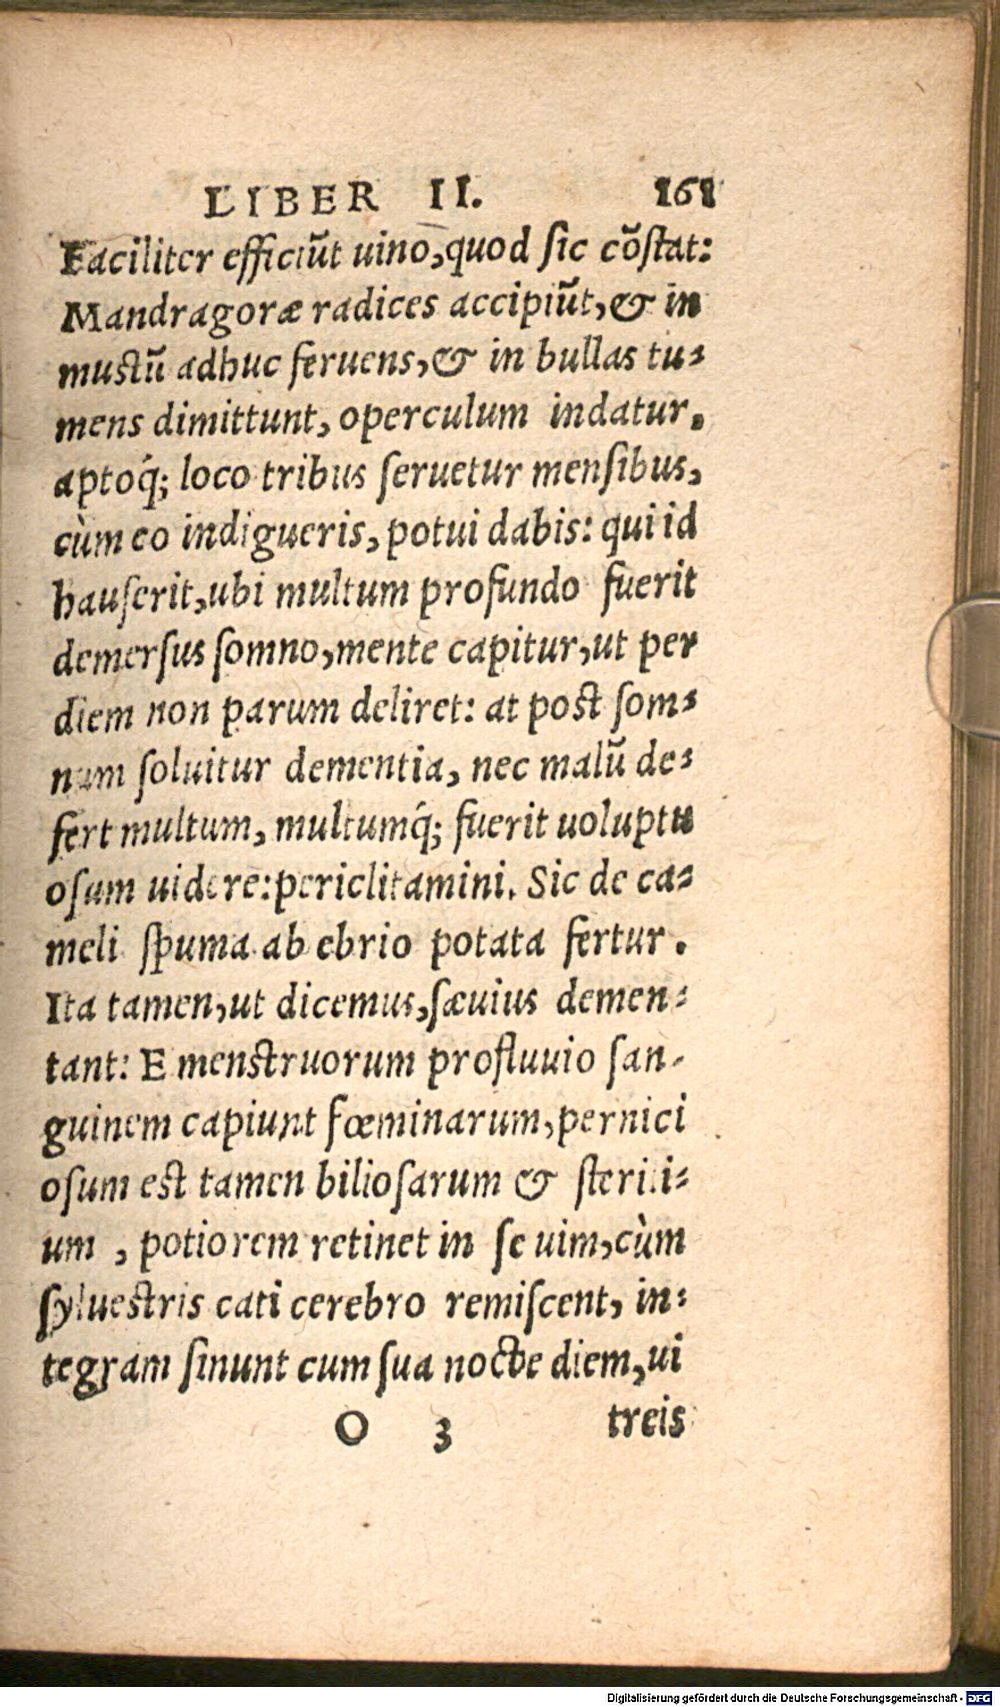 LIBER II. 161
Faciliter efficiūt uino, quod sic cōstat:
Mandragoræ radices accipiūt, & in
mustū adhuc feruens, & in bullas tu-
mens dimittunt, operculum indatur.
aptoq́; loco tribus seruetur mensibus,
cùm eo indigueris, potui dabis: qui id
hauserit, ubi multum profundo fuerit
demersus somno, mente capitur, ut per
diem non parum deliret: at post som-
num soluitur dementia, nec malū de-
fert multum, multumq́; fuerit uoluptu
osum uidere: periclitamini. Sic de ca-
meli spuma ab ebrio potata fertur.
Ita tamen, ut dicemus, sæuius demen-
tant: E menstruorum profluuio san-
guinem capiunt fœminarum, pernici
osum est tamen biliosarum & sterili-
um, potiorem retinet in se uim, cùm
syluestris cati cerebro remiscent, in-
tegram sinunt cum sua nocte diem, ui
O 3 treis
Digitalisierung gefördert durch die Deutsche Forschungsgemeinschaft - DFG